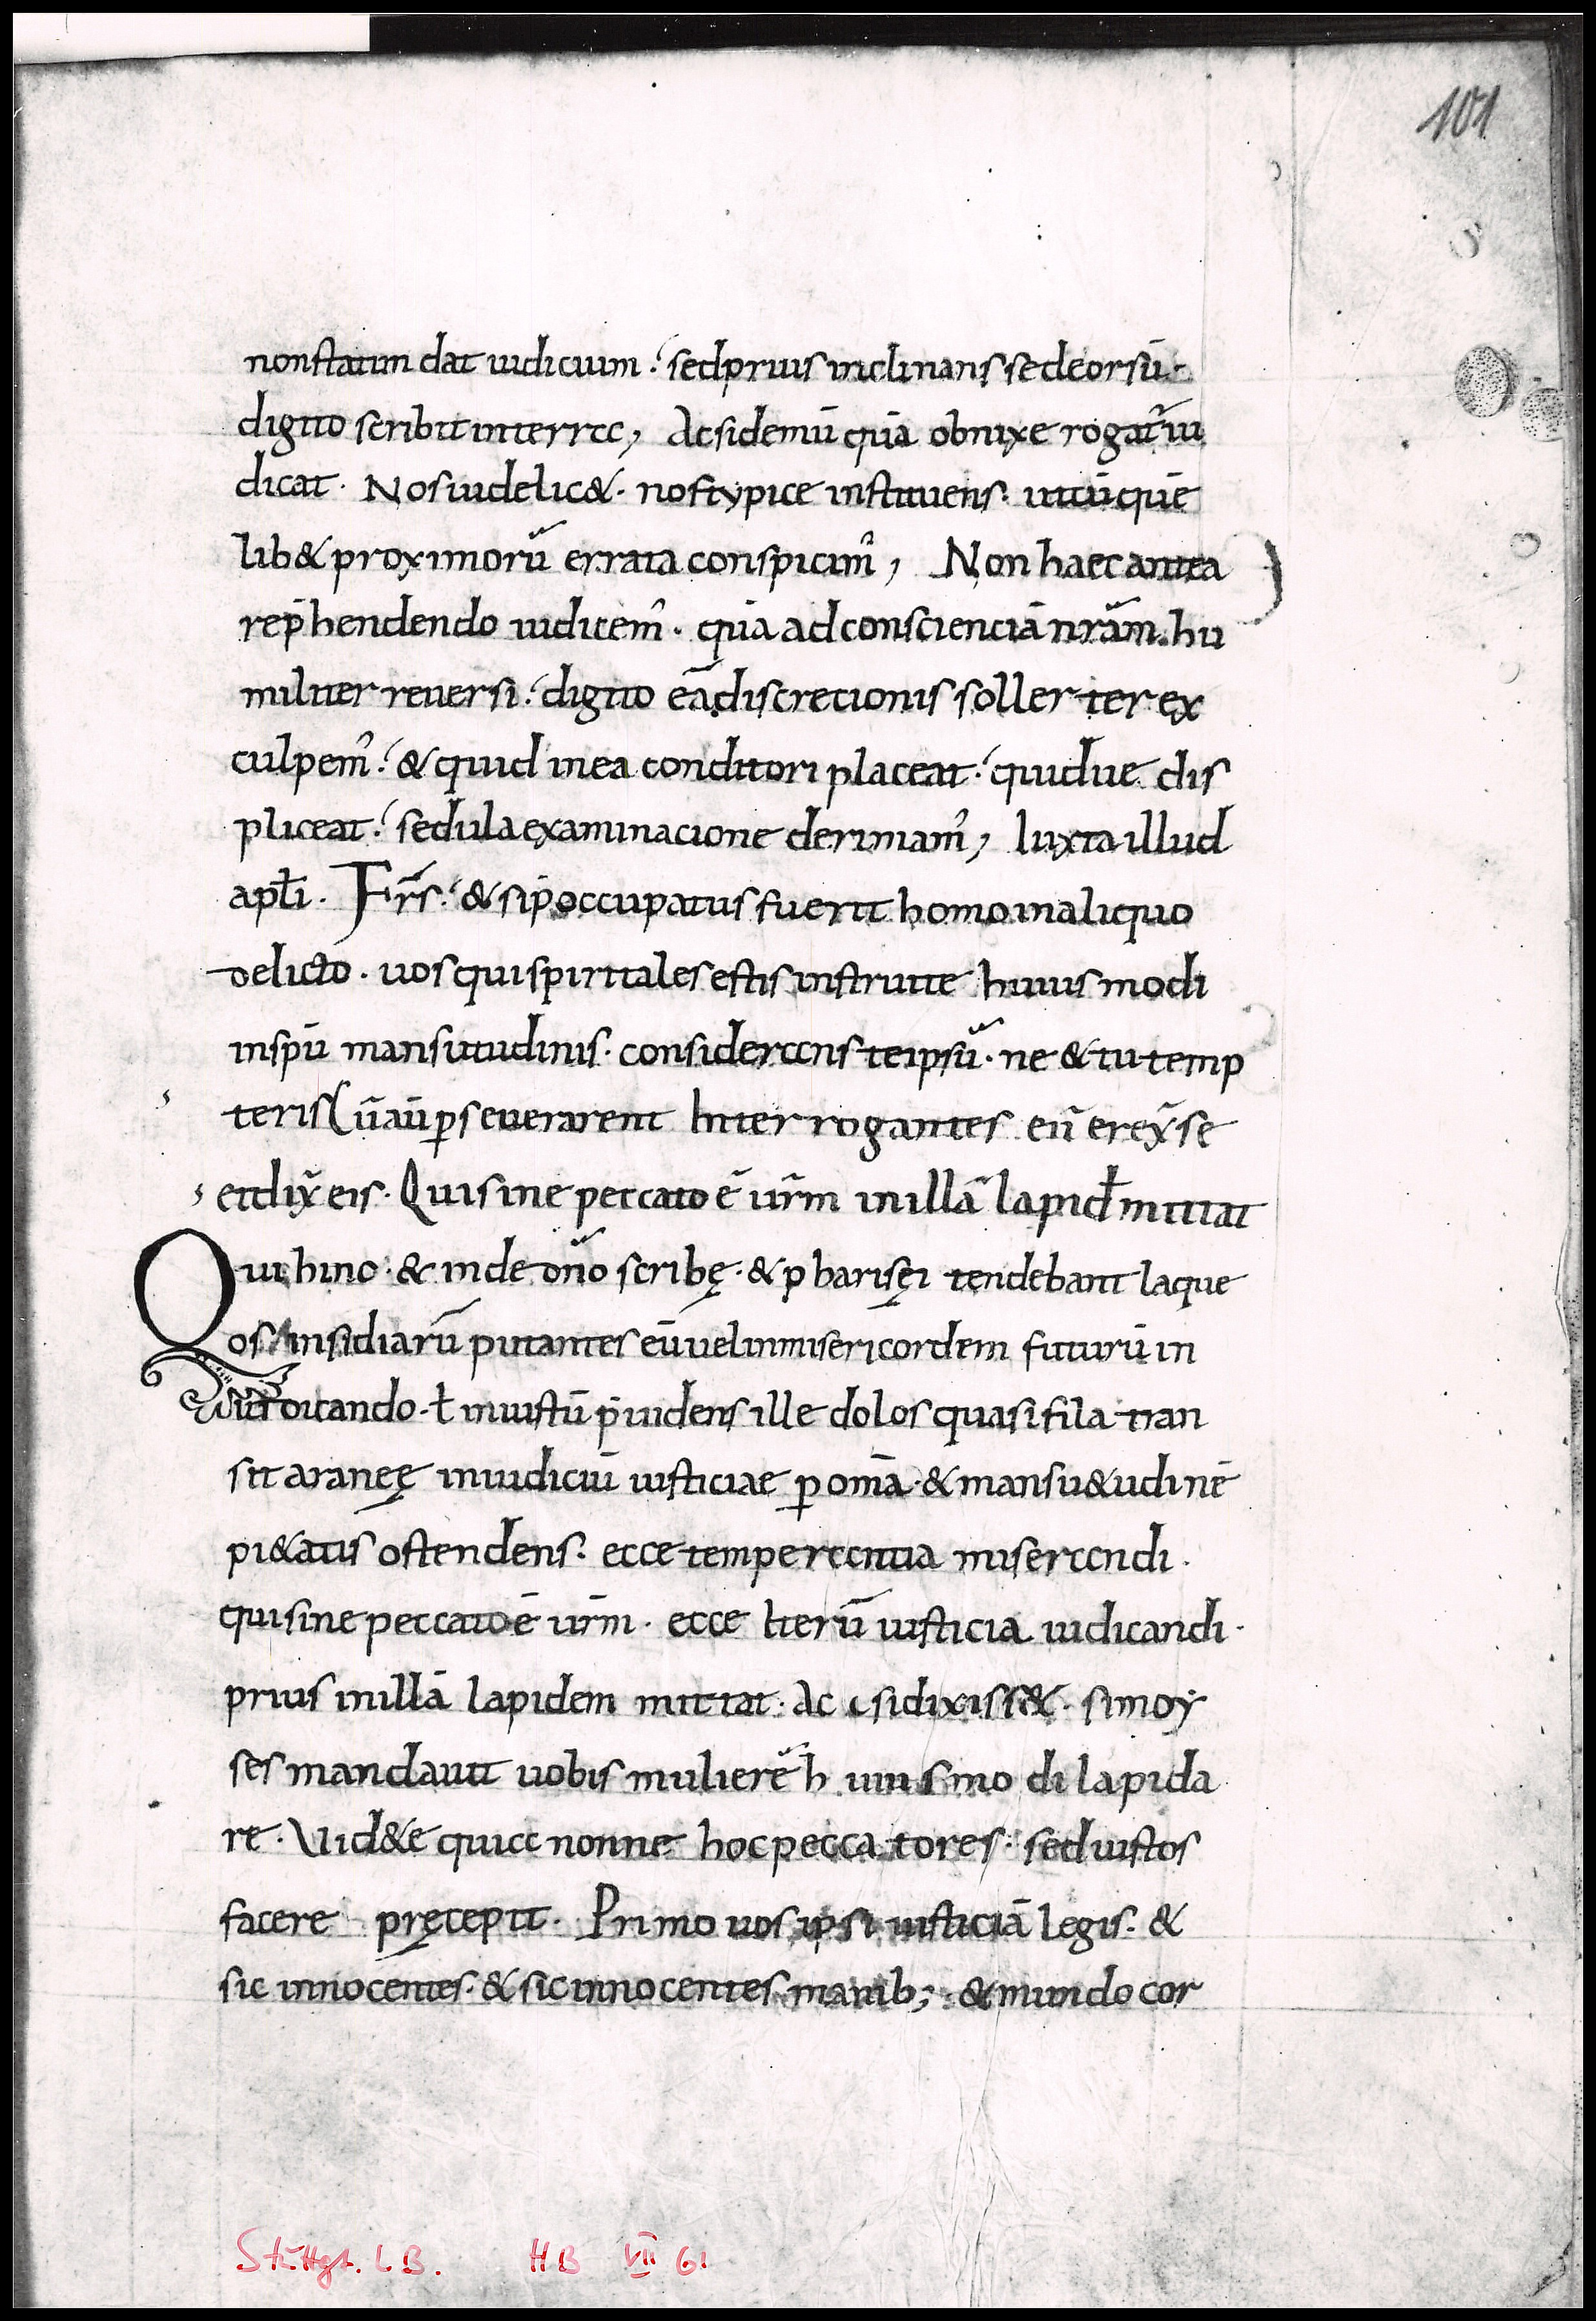 101
non statim dat iudicium. sed prius inclinans se deorsū.
digito scribit in terra, Ac si demū quia obnixe rogat᷒ iu
dicat. Nos uidelic&. nos typice instituens. ut cū quē
lib& proximorū errata conspicim᷒, Non haec antea
rep̄hendendo iudicem᷒. quia ad conscienciā nrām. hu
militer reuersi. digito eā discrecionis soller ter ex
culpem᷒. & quid in ea conditori placeat. quid ue dis
pliceat. sedula examinacione derimam᷒, Iuxta illud
apłi. Frs̄. & si p̄occupatus fuerit homo in aliquo
delicto. uos qui spiritales estis instruite huius modi
in spū mansuitudinis. considerans te ipsū. ne & tu temp
teris Cū aū ꝑseuerarent Interrogantes eū erex̄ se
et dix̄ eis. Qui sine peccato ē ur̄m in illā lapid̄ mittat
Qui hinc. & inde dn̄o scribę. & pharisęi tendebant laque
os insidiarū putantes eū uel inmisericordem futurū in
iudicando. ł iniustū p̄uidens ille dolos quasi fila tran
sit araneę in iudiciū iusticiae ꝑ omā. & mansu&udinē
pi&atis ostendens. ecce temperantia miserandi.
qui sine peccato ē ur̄m. ecce Iterū iusticia iudicandi.
prius in illā lapidem mittat. Ac si dixiss&. si moy
ses mandauit uobis mulierē h uius mo di lapida
re. Uid&e quia non ne hoc pecca tores. sed iustos
facere pręcepit. Primo uos ipsi iusticiā legis. &
sic innocentes. & sic innocentes manib; & mundo cor
Stuttgt. L B. HB VII 61